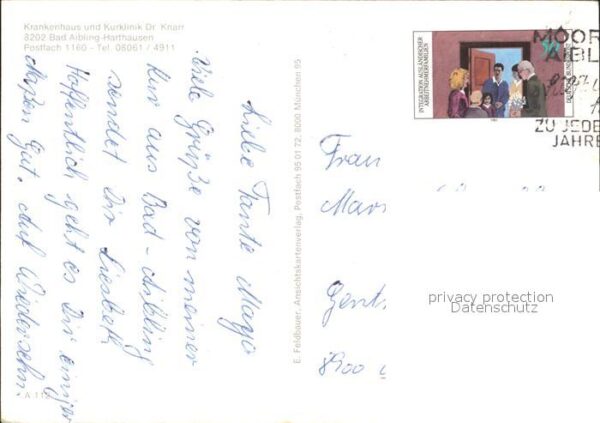 Krankenhaus und Kurklinik Dr. Knarr
8202 Bad Aibling-Harthausen
Postfach 1160 - Tel. 08061 / 4911
Liebe Tante Maja
Viele Grüße von meiner
Kur aus Bad-Aibling
sendet Dir Liesbeth
Hoffentlich geht es Dir einiger
maßen gut. Auf Wiedersehn.
A 112
E. Feldbauer, Ansichtskartenverlag, Postfach 95 01 72, 8000 München 95
INTEGRATION AUSLÄNDISCHER
ARBEITNEHMERFAMILIEN
MOOR
AIBL
ZU JEDE
JAHRE
Frau
Mar
Gent
8900
privacy protection
Datenschutz